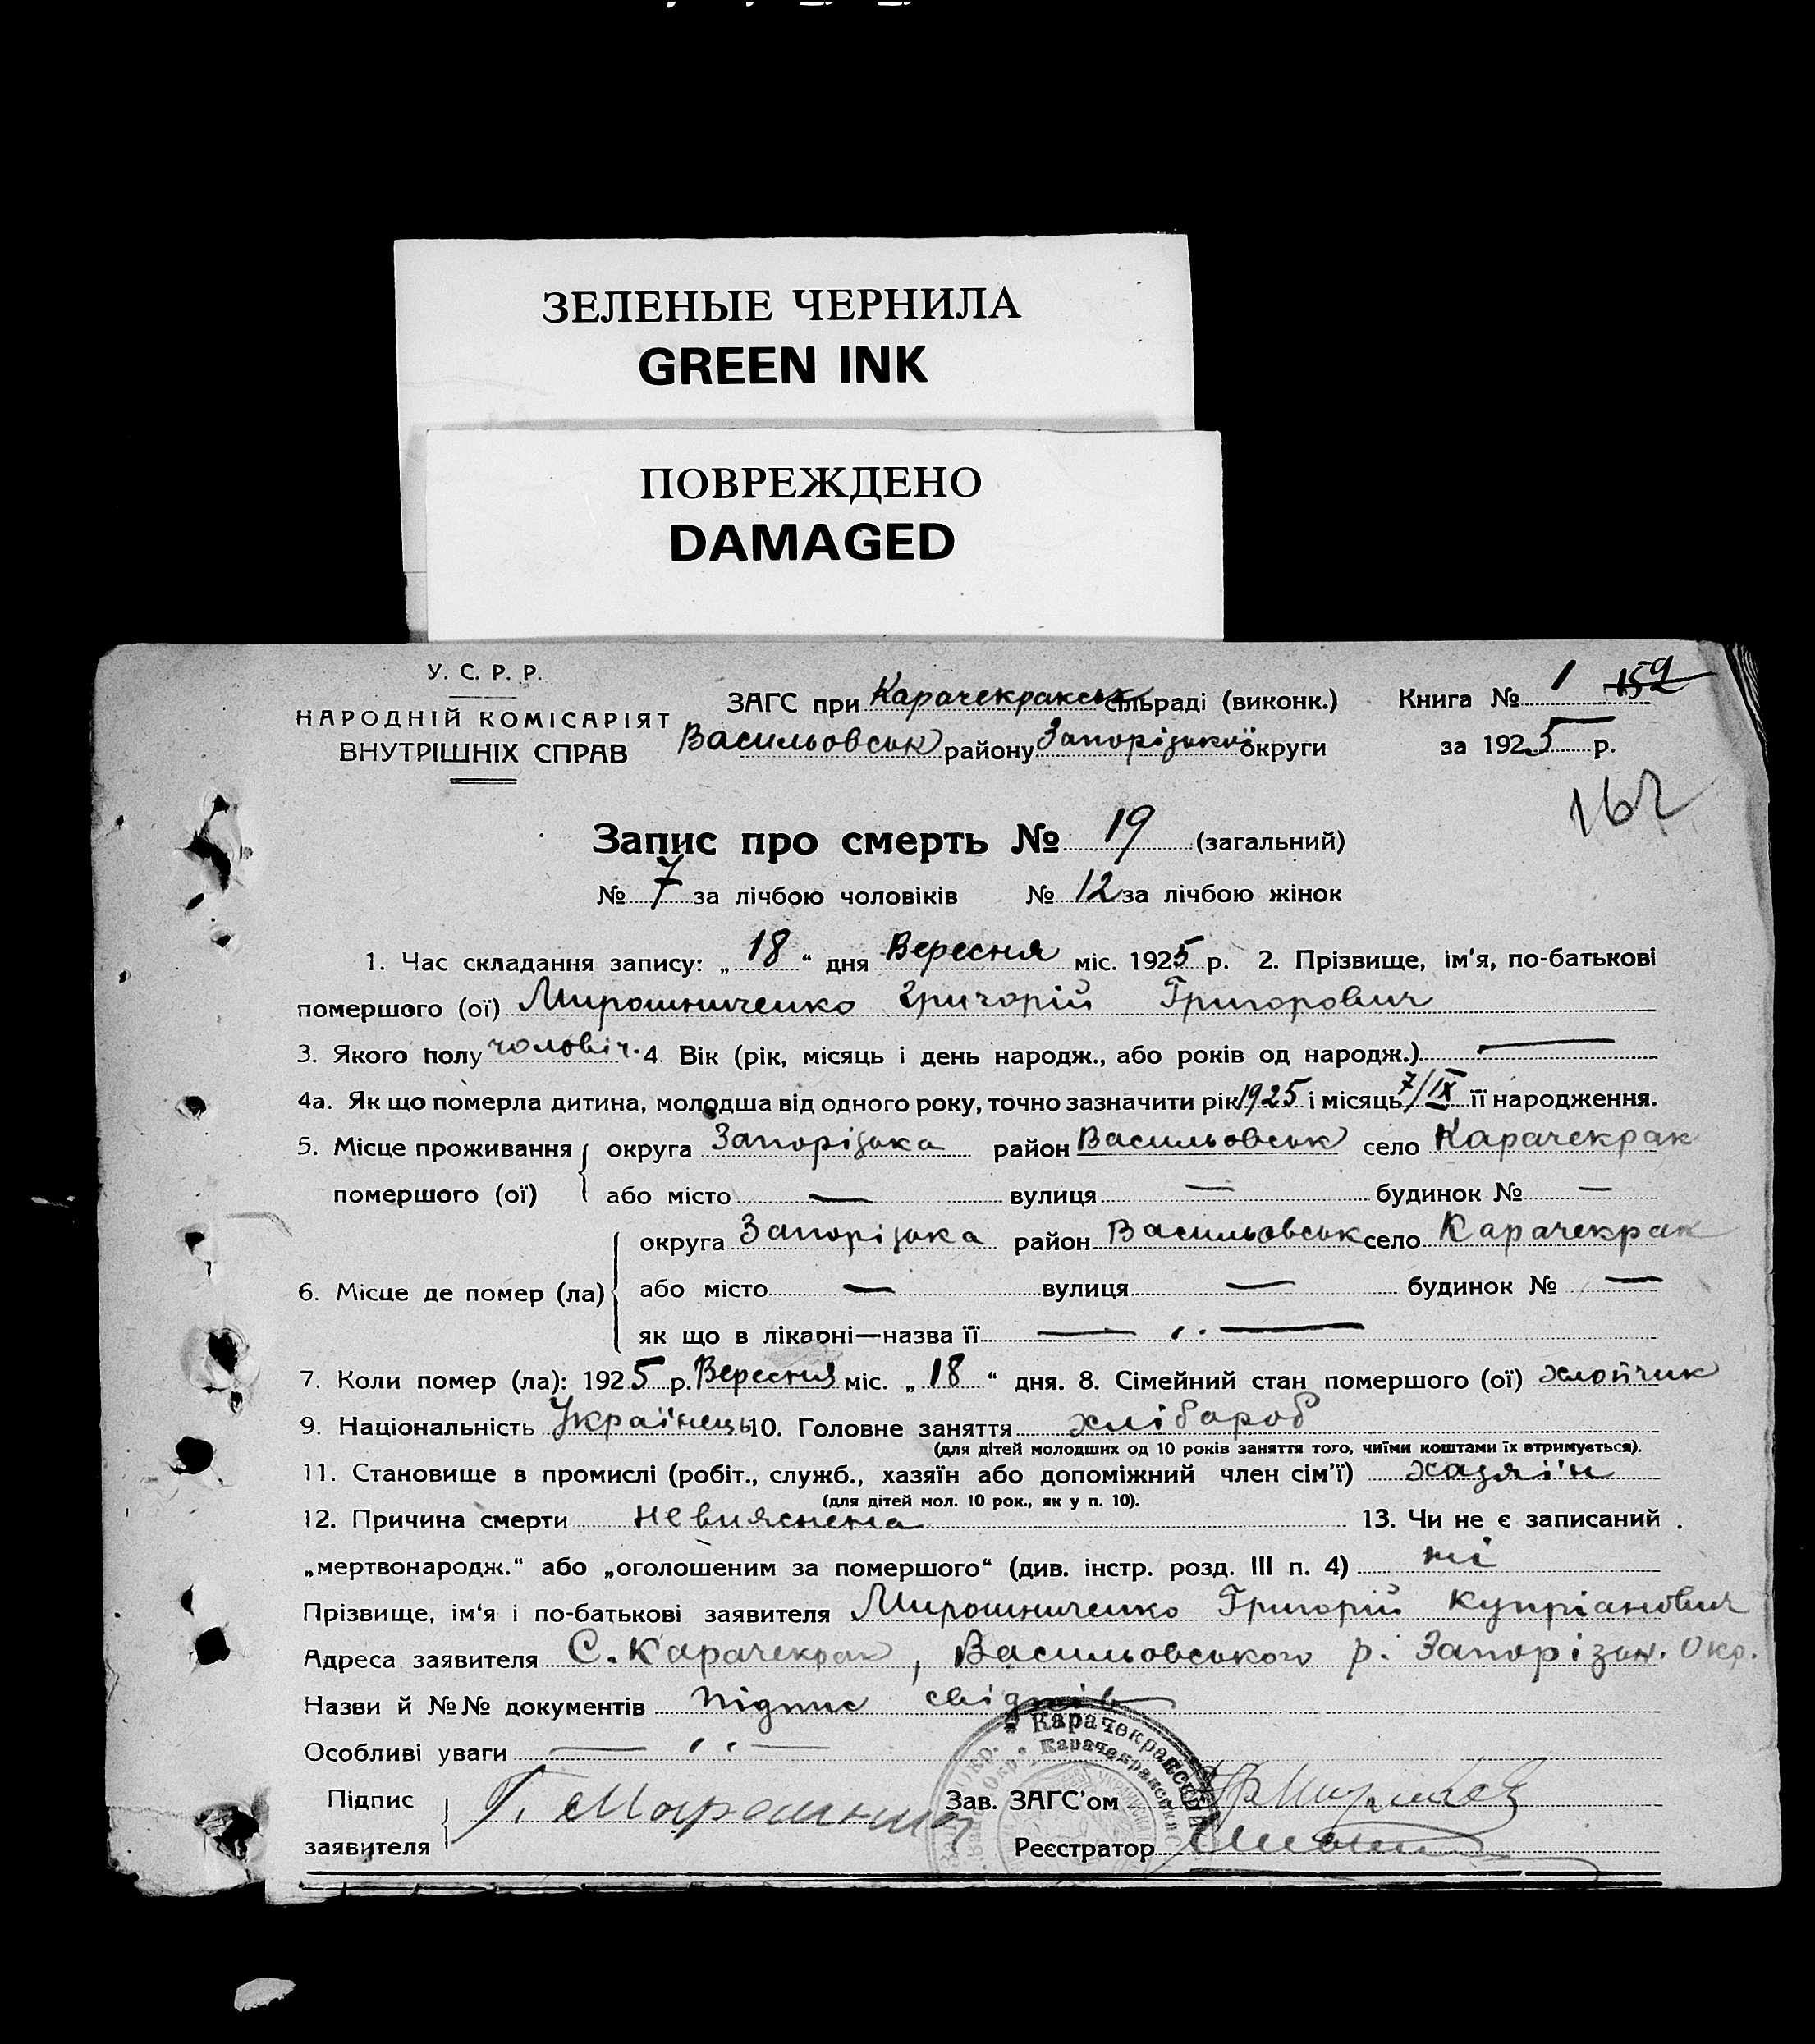 ЗЕЛЕНЫЕ ЧЕРНИЛА
GREEN INK
ПОВРЕЖДЕНО
DAMAGED
У. С. Р. Р.
НАРОДНІЙ КОМІСАРІЯТ
ВНУТРІШНІХ СПРАВ
ЗАГС при Карачекракськ сільраді (виконк.) Книга № 1 159
Васильовськ району Запорізької округи за 1925 р.
162
Запис про смерть № 19 (загальний)
№ 7 за лічбою чоловіків № 12 за лічбою жінок
1. Час складання запису: „ 18 “ дня Вересня міс. 1925 р. 2. Прізвище, ім'я, по-батькові
помершого (ої) Мирошниченко Григорій Григорович
3. Якого полу чоловіч. 4. Вік (рік, місяць і день народж., або років од народж.) —
4а. Як що померла дитина, молодша від одного року, точно зазначити рік 1925 і місяць 7/IX її народження.
5. Місце проживання округа Запорізька район Васильовськ село Карачекрак
помершого (ої) або місто — вулиця — будинок № —
округа Запорізька район Васильовськ село Карачекрак
6. Місце де помер (ла) або місто — вулиця — будинок № —
як що в лікарні—назва її — ,, —
7. Коли помер (ла): 1925 р. Вересня міс. „ 18 “ дня. 8. Сімейний стан помершого (ої) хлопчик
9. Національність Українець 10. Головне заняття хлібороб
(для дітей молодших од 10 років заняття того, чиїми коштами їх втримується).
11. Становище в промислі (робіт., служб., хазяїн або допоміжний член сім'ї) хазяїн
(для дітей мол. 10 рок., як у п. 10).
12. Причина смерти невияснена 13. Чи не є записаний
„мертвонародж.“ або „оголошеним за помершого“ (див. інстр. розд. III п. 4) ні
Прізвище, ім'я і по-батькові заявителя Мирошниченко Григорій Купріанович
Адреса заявителя С. Карачекрак, Васильовського р. Запорізьк. Окр.
Назви й №№ документів підпис свідків
Особливі уваги — ,, —
Підпис Г. Мирошнич Зав. ЗАГС'ом
заявителя Реєстратор